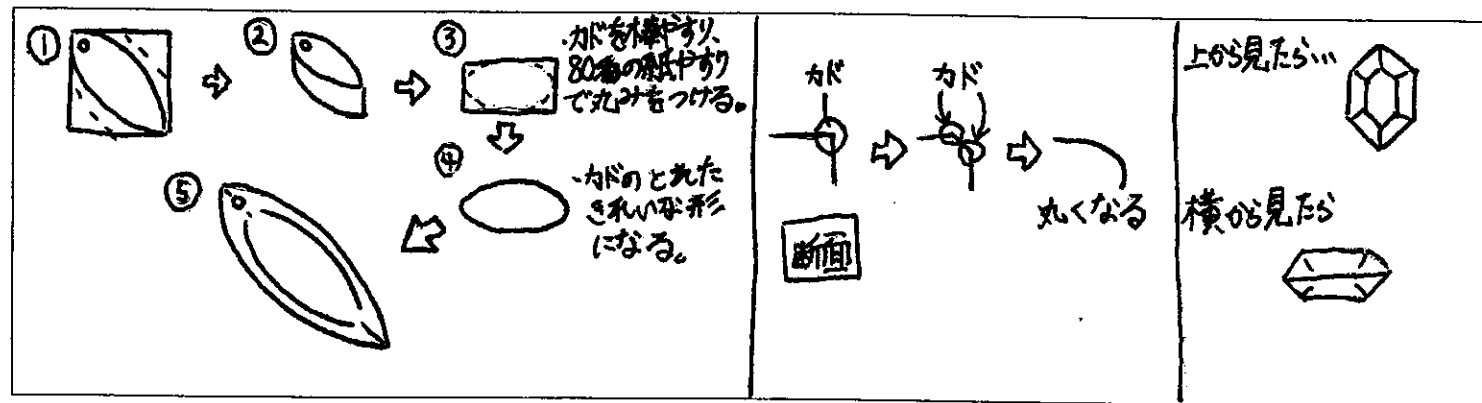 ①
②
③
・カドを棒やすり、
80番の紙やすり
で丸みをつける。
④
・カドのとれた
きれいな形
になる。
⑤
カド
カド
丸くなる
断面
上から見たら…
横から見たら